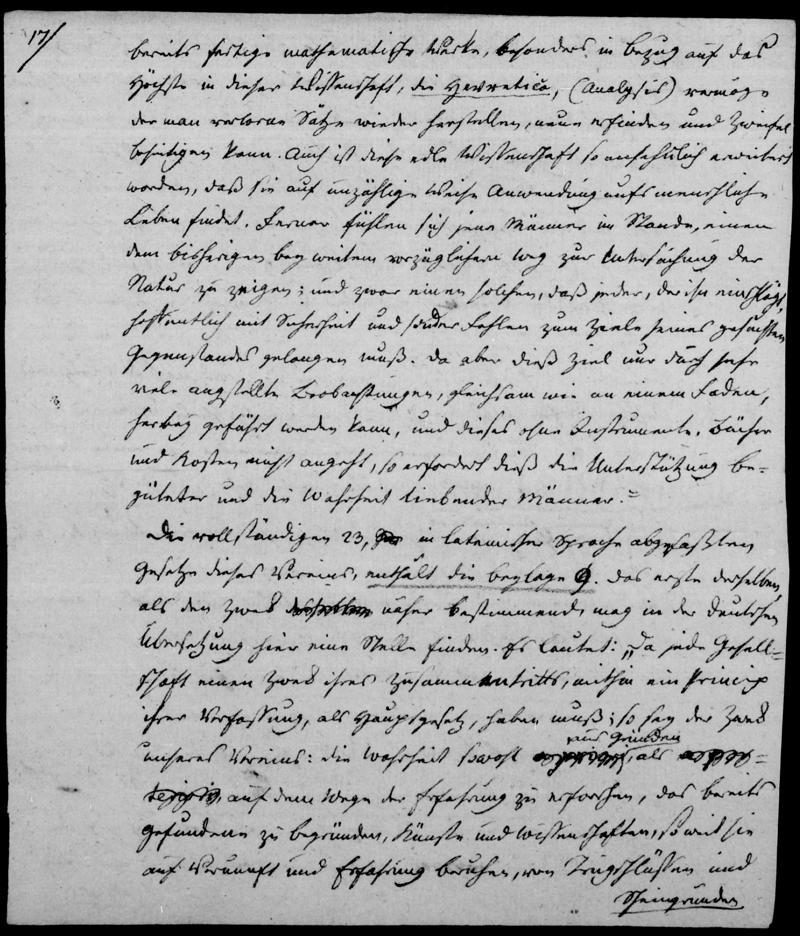 17/
bereits fertige mathematische Werke, besonders in Bezug auf das
Höchste in dieser Wissenschaft, die Hevretica, (Analysis) vermöge
der man verlorne Sätze wieder herstellen, neue erfinden und Zweifel
beseitigen kann. Auch ist diese edle Wissenschaft so ansehnlich erweitert
worden, daß sie auf unzählige Weise Anwendung aufs menschliche
Leben findet. Ferner fühlen sich jene Männer im Stande, einen
dem bisherigen bey weitem vorzüglichern Weg zur Untersuchung der
Natur zu zeigen; und zwar einen solchen, daß jeder, der ihn einschlägt,
hoffentlich mit Sicherheit und sonder Fehlen zum Ziele seines gesuchten
Gegenstandes gelangen muß. Da aber dieß Ziel nur durch sehr
viele angestellte Beobachtungen, gleichsam wie an einem Faden,
herbey geführt werden kann, und dieses ohne Instrumente, Bücher
und Kosten nicht angeht, so erfordert dieß die Unterstützung be-
güteter und die Wahrheit liebender Männer.
Die vollständigen 23, in lateinischer Sprache abgefaßten
Gesetze dieses Vereins, enthält die Beylage 9. Das erste derselben,
als den Zweck näher bestimmend, mag in der deutschen
Übersetzung hier eine Stelle finden. Es lautet: „Da jede Gesell-
schaft einen Zweck ihres Zusammentritts, mithin ein Princip
ihrer Verfassung, als Hauptgesetz, haben muß; so sey der Zweck
unseres Vereins: die Wahrheit sowohl aus Gründen, als
auf dem Wege der Erfahrung zu erforschen, das bereits
gefundene zu begründen, Künste und Wissenschaften, so weit sie
auf Vernunft und Erfahrung beruhen, von Trugschlüssen und
Scheingründen